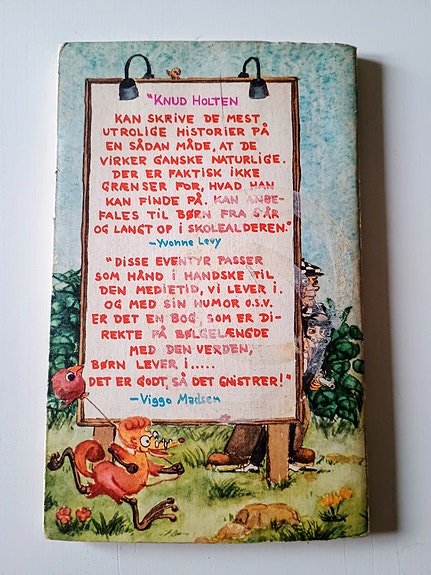 "KNUD HOLTEN
KAN SKRIVE DE MEST
UTROLIGE HISTORIER PÅ
EN SÅDAN MÅDE, AT DE
VIRKER GANSKE NATURLIGE.
DER ER FAKTISK IKKE
GRÆNSER FOR, HVAD HAN
KAN FINDE PÅ. KAN ANBE-
FALES TIL BØRN FRA 5 ÅR
OG LANGT OP I SKOLEALDEREN."
-Yvonne Levy
"DISSE EVENTYR PASSER
SOM HÅND I HANDSKE TIL
DEN MEDIETID, VI LEVER I.
OG MED SIN HUMOR O.S.V.
ER DET EN BOG, SOM ER DI-
REKTE PÅ BØLGELÆNGDE
MED DEN VERDEN,
BØRN LEVER I.....
DET ER GODT, SÅ DET GNISTRER!"
-Viggo Madsen